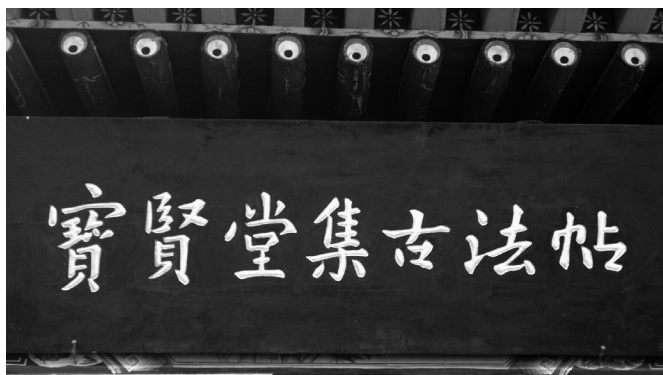 寶賢堂集古法帖